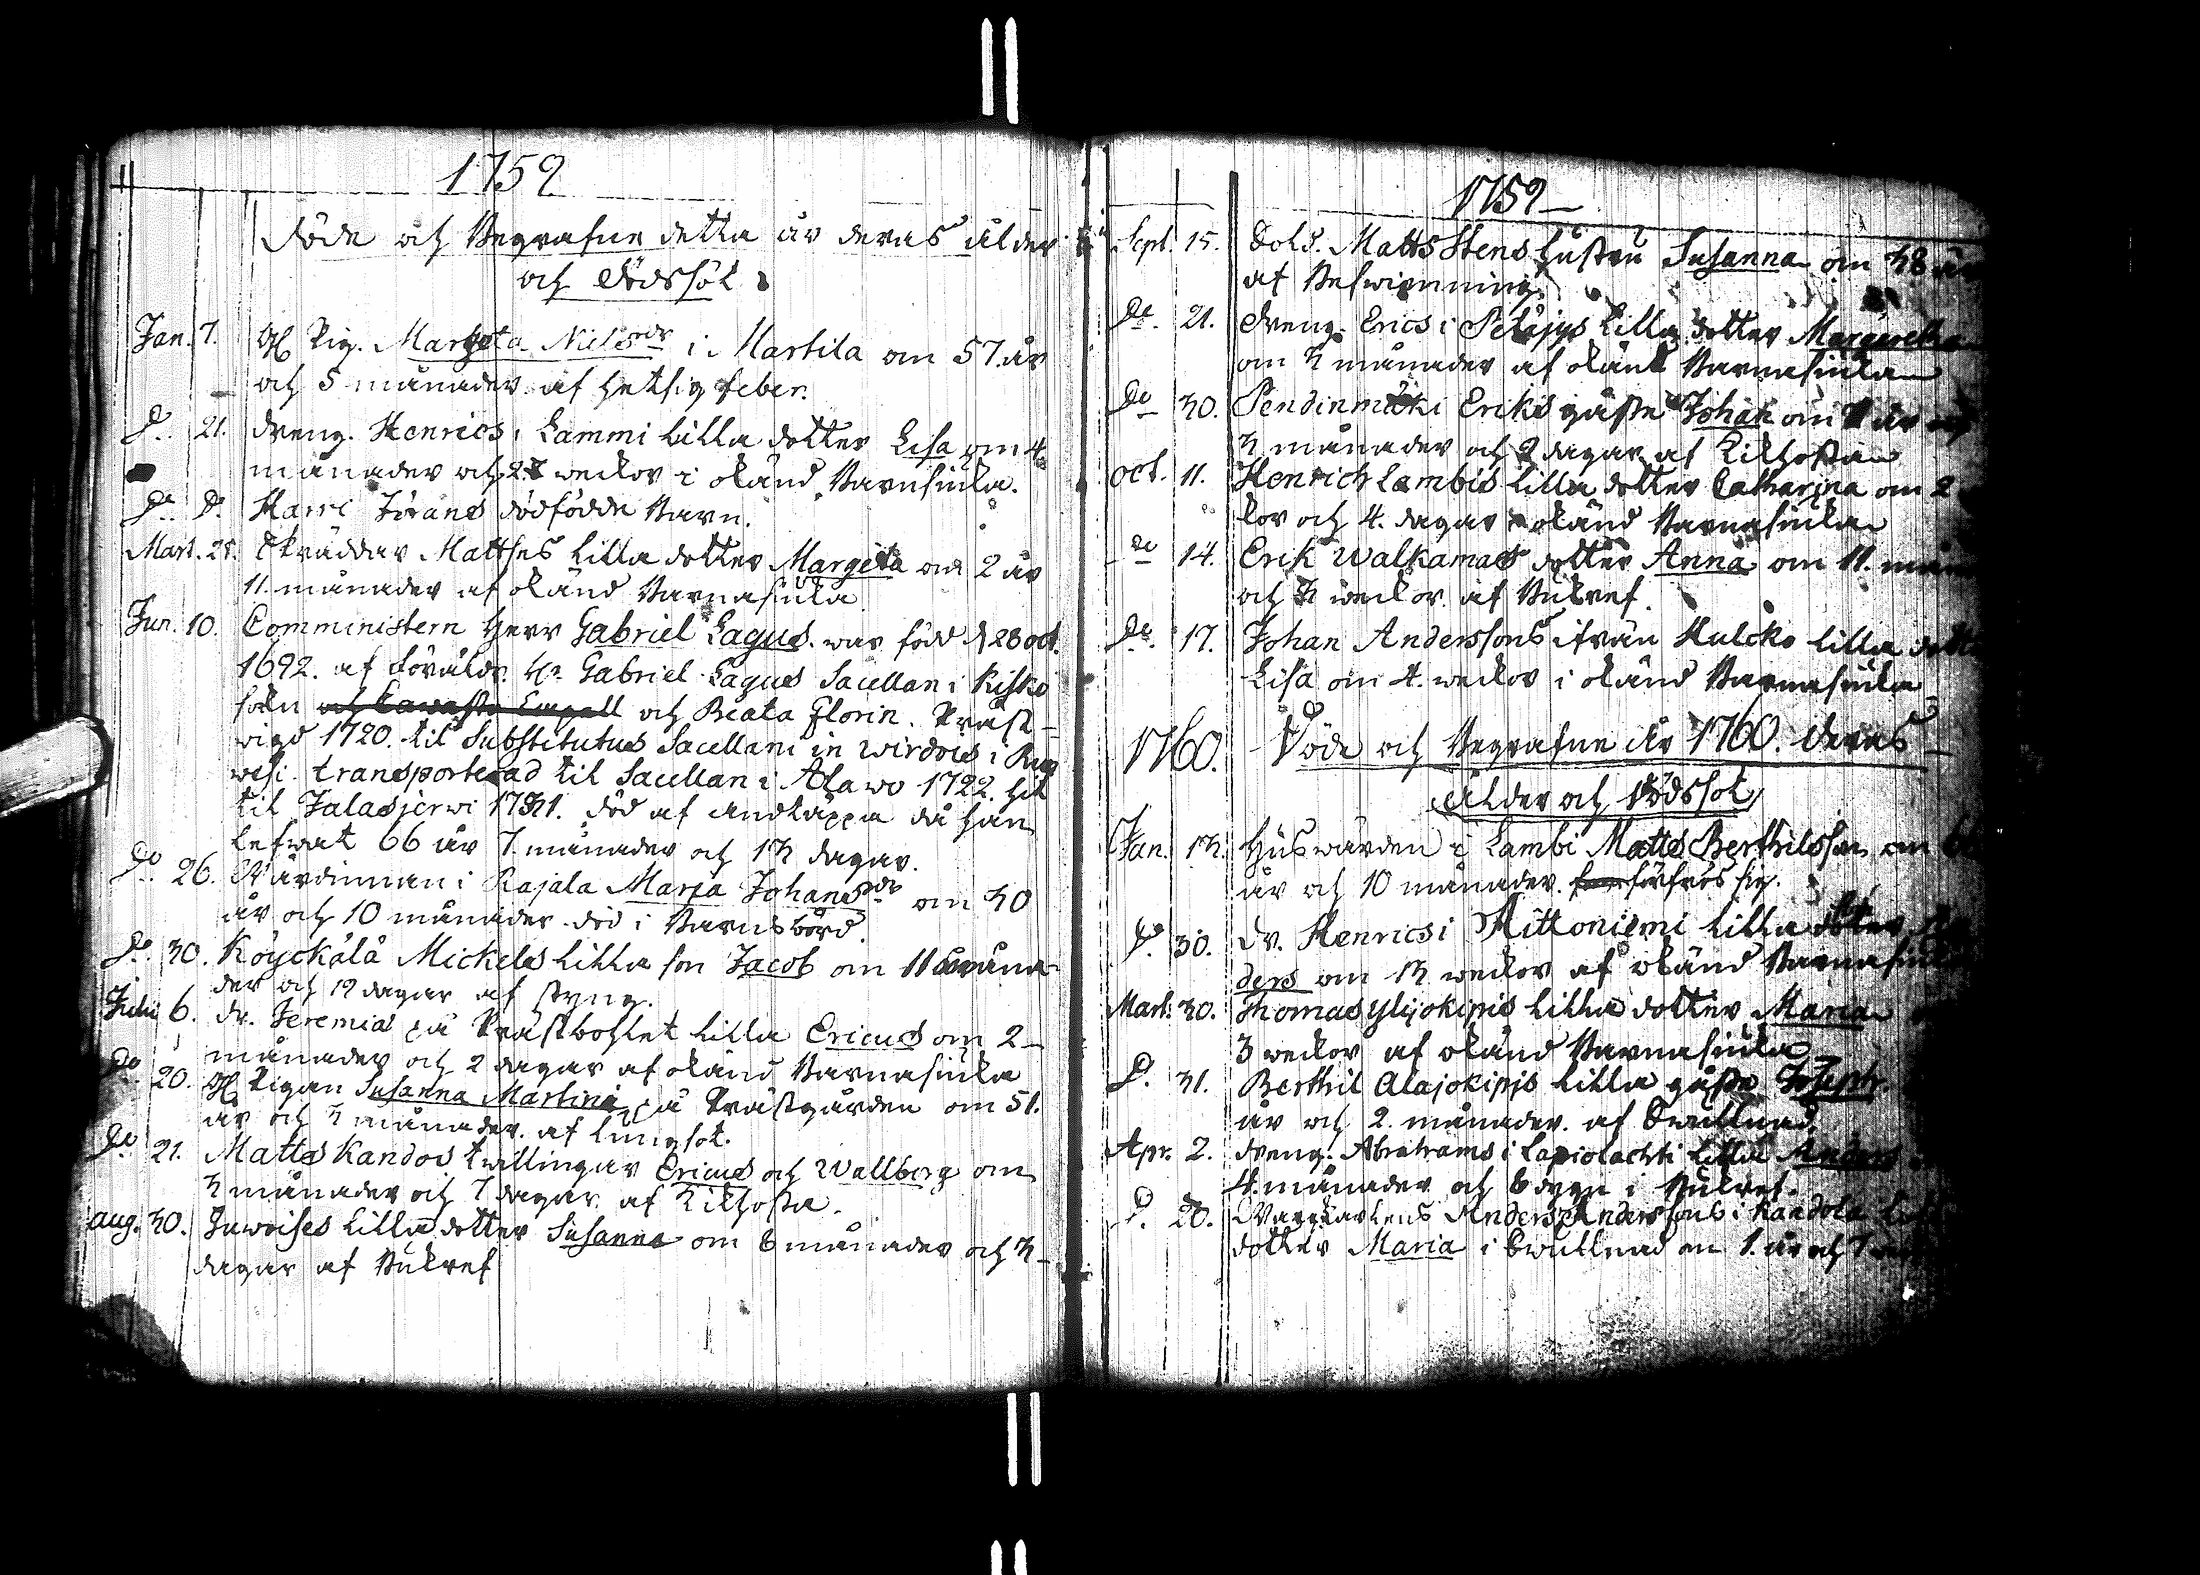 1759
Döde och Begrafne detta år deras ålder
och Dödssot
Jan. 7. Gl. Pig. Margeta Nilsdr i Martila om 57 år
och 5 månader af hetsig feber.
Do 21. Dreng. Henrics i Lammi lilla dotter Lisa om 4
månader och 2 weckor i okänd Barnsiuka.
Do Do Harri Jörans dödfödde Barn.
Mart. 25. Skräddar Matthes lilla dotter Margeta om 2 år
11. månader af okänd Barnasiuka
Jun. 10. Comministern Herr Gabriel Lagus. war född d 28 oct.
1692. af föräldr. Hr Gabriel Lagus Sacellan i Kisko
sokn och Beata Florin. Präst-
wigd 1720. til Substitutus Sacellani in Wirdois i Ru
wesi. transporterad til Sacellan i Alawo 1722. hit
til Jalasjerwi 1731. död af andtäppa då han
lefwat 66 år 7. månader och 13 dagar.
Do 26. Wärdinnan i Rajala Marja Johansdr om 30
år och 10 månader död i Barnsbörd.
Do 30. Köyckälä Mickels lilla son Jacob om 11 måna-
der och 19 dagar af styng.
Julii 6. Dr. Jeremiæ på Prästbohlet lilla Ericus om 2-
månader och 2 dagar af okänd Barnasiuka
Do 20. Gl. Pigan Susanna Martini på Prästgården om 51.
år och 3 månader. af lungsot.
Do 21. Matts Kandos twillingar Ericus och Wallborg om
3 månader och 7 dagar. af Kikhosta.
Aug. 30. Juweises lilla dotter Susanna om 6 månader och 3-
dagar af Bukref
1759
Sept. 15. Sold. Matts Stens hustru Susanna om 38 år
af Beswimning.
Do 21. Dreng. Erics i Peläjys lilla dotter Margaretha
om 3 månader af okänd Barnasiuka
Do 30. Pendinmäki Eriks gåsse Johan om år och
3 månader och 2 dagar af Kikhostan
Oct. 11. Henrich Lambis lilla dotter Catharina om 2
kor och 4. dagar okänd Barnasiuka
Do 14. Erik Walkamas dotter Anna om 11. mån
och 3 weckor. af Bukref.
Do 17. Johan Anderssons ifrån Hulcko lilla dotter
Lisa om 4. weckor i okänd Barnasiuka
1760. Döde och Begrafne År 1760. deras
ålder och Dödssot
Jan. 13. Huswärden i Lambi Matts Berthilsson om
år och 10 månader. förfrös sig.
Do 30. Dr. Henrics i Mittoniemi lilla
ders om 13 weckor af okänd Barnasiuka
Mart. 30. Thomas Ylijokipis lilla dotter Maria
3 weckor af okänd Barnasiuka
D. 31. Berthil Alajokipis lilla gåsse Joseph.
år och 2. månader. af Swullnad.
Apr. 2. Dreng. Abrahams i Lapiolachti lilla Anders
4. månader och 6 dygn i Bukref.
D. 20. Anders Anderssons i Kandola
dotter Maria i Swullnad om 1. år och 7